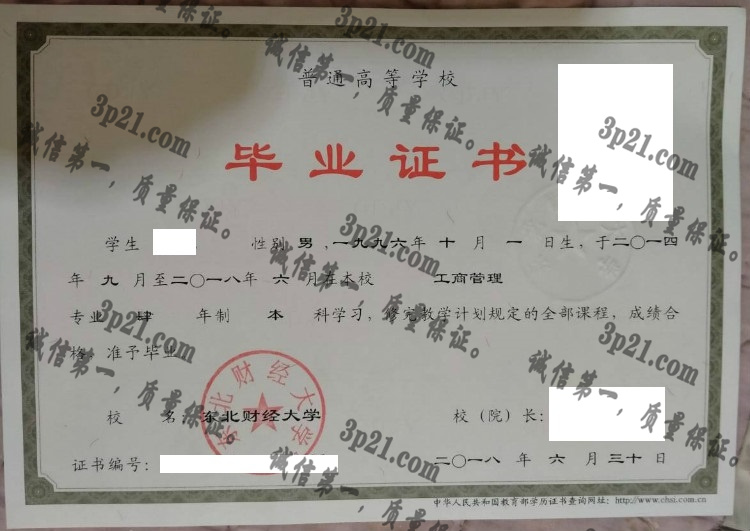 普通高等学校
毕业证书
学生 性别 男 ,一九九六年 十 月 一 日生, 于二〇一四
年 九 月至二〇一八年 六 月在本校 工商管理
专业 肆 年制 本 科学习, 修完教学计划规定的全部课程, 成绩合
格, 准予毕业。
东北财经大学
校 名: 东北财经大学 校（院）长:
证书编号: 二〇一八 年 六 月 三十日
中华人民共和国教育部学历证书查询网址: http://www.chsi.com.cn
3p21.com
诚信第一，质量保证。
3p21.com
诚信第一，质量保证。
3p21.com
诚信第一，质量保证。
3p21.com
诚信第一，质量保证。
3p21.com
诚信第一，质量保证。
3p21.com
诚信第一，质量保证。
3p21.com
诚信第一，质量保证。
3p21.com
诚信第一，质量保证。